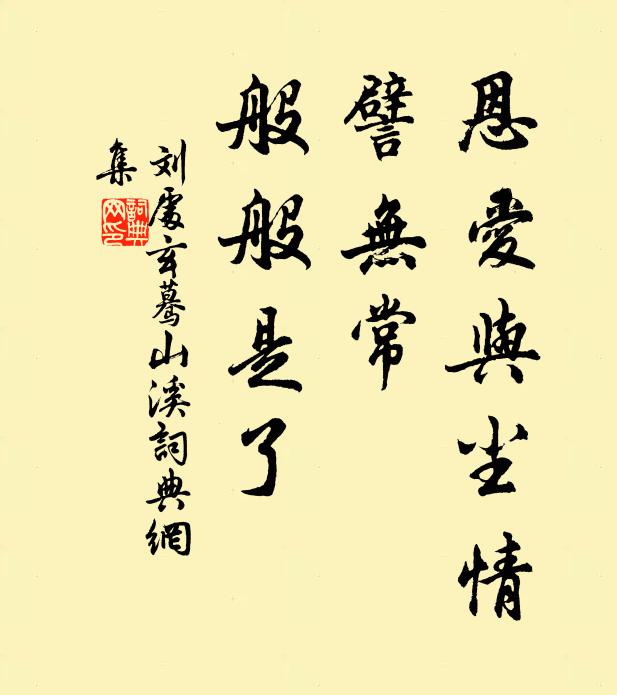 恩愛與尘情
譬無常
般般是了
刘處玄驀山溪詞典網
集
詞典
网印